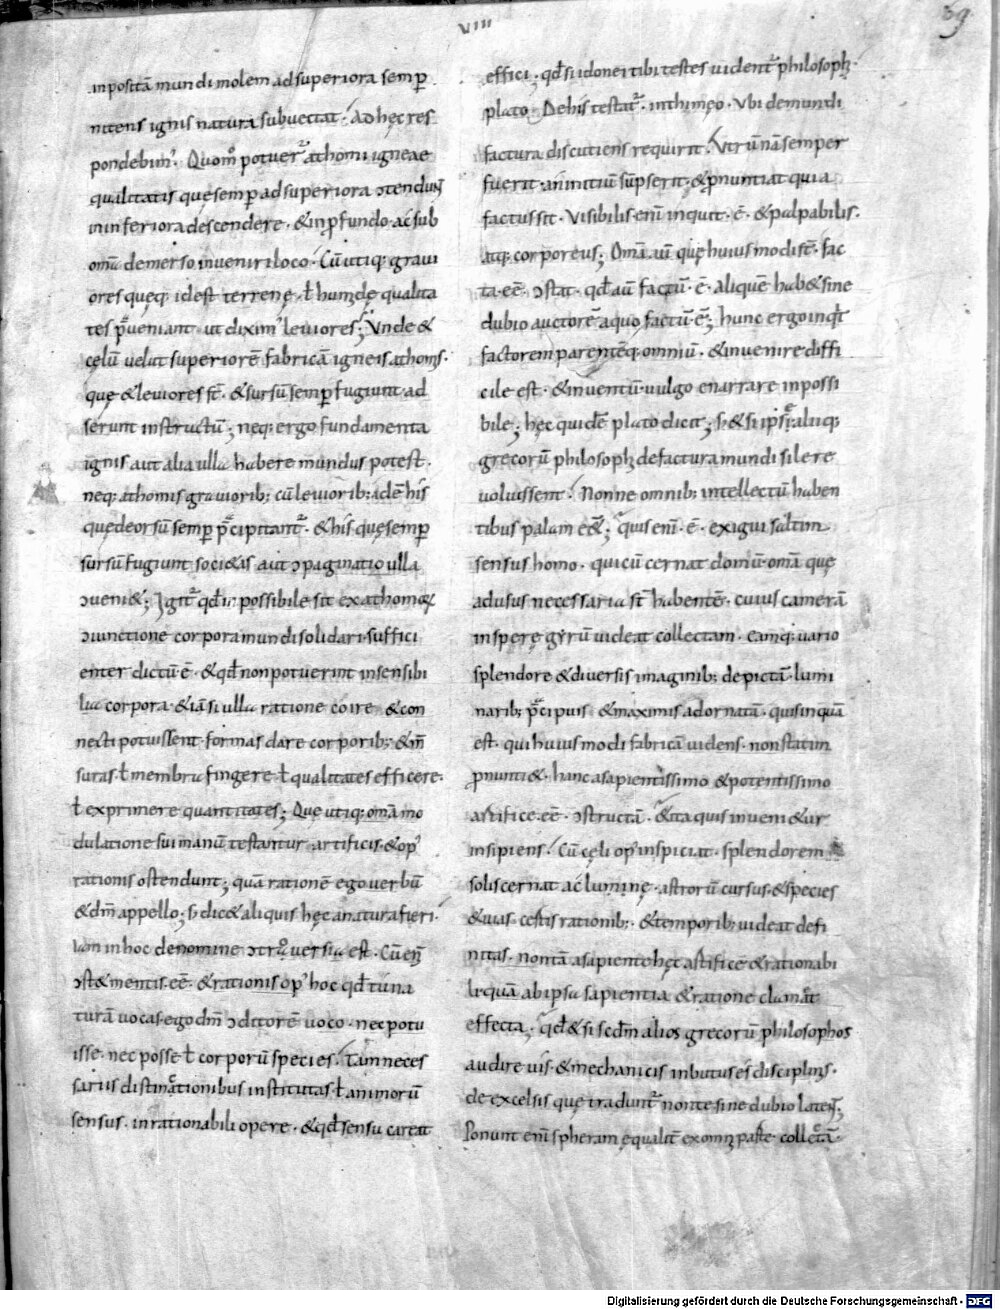 VIII
59
inpositā mundi molem ad superiora semꝑ
nitens ignis natura subuectat. Ad hęc res
pondebim̄. Quom̊ potuer̄ athomi igneae
qualitatis que semꝑ ad superiora ↄtendunt
in inferiora descendere. & in ꝓfundo ac sub
om̄ia demerso inueniri loco. Cū utiq; graui
ores quęq; id est terrenę ł humidę qualita
tes p̄ueniant. ut dixim᾽ leuiores; Vnde &
cęlū uelut superiorē fabricā igneis athomis.
que & leuiores st̄. & sursū semꝑ fugiunt ad
serunt instructū; neq; ergo fundamenta
ignis aut alia ulla habere mundus potest.
neq; athomis grauiorib; cū leuiorib; id ē his
quę deorsū semꝑ p̄cipitant᷑. & his quę semꝑ
sursū fugiunt societas aut ↄpaginatio ulla
ↄueniet; Igit᷑ qđ inpossibile sit ex athomoꝝ
ↄiunctione corpora mundi solidari suffici
enter dictū ē. & qđ non potuerint insensibi
lia corpora. & iā si ulla ratione coire & con
necti potuissent. formas dare corporib;. & m̄
suras. ł membra fingere. ł qualitates efficere.
ł exprimere quantitates; Que utiq; om̄ia mo
dulatione sui manū testantur artificis. & op᾽
rationis ostendunt; quā rationē ego uerbū
& dm̄ appello; s; dicet aliquis hęc a natura fieri.
iam in hoc de nomine ↄtrouersia est. Cū eni
ↄstet mentis eē. & rationis op᾽ hoc qđ tu na
turā uocas. ego dm̄ ↄditorē uoco. nec potu
isse. nec posse ł corporū species. tā neces
sariis distinationibus institutas ł animorū
sensus. inrationabili opere. & qđ sensu careat
effici; qđ si idonei tibi testes uident᷑ philosophi.
plato. De his testat᷑. in thimeo. Vbi de mundi
factura discutiens requirit. Vtrū nā semper
fuerit. an initiū sūpserit. & ꝓnuntiat quia
factus sit. Visibilis enī inquit. ē. & palpabilis.
atq; corporeus; Om̄ia aū quę huiusmodi st̄. fac
ta. eē. ↄstat. qđ aū factū. ē. aliquē habet sine
dubio auctorē a quo factū. ē; hunc ergo inq̇t
factorem parentēq; omniū. & inuenire diffi
cile est. & inuentū uulgo enarrare inpossi
bile; hęc quidē plato dicit; s; & si ipse aliiq;
grecorū philosophi de factura mundi silere
uoluissent. Nonne omnib; intellectū haben
tibus palam eēt; quis enī. ē. exigui saltim
sensus homo. qui cū cernat domū om̄ia quę
ad usus necessaria st̄ habentē. cuius camerā
in sperę gyrū uideat collectam. eamq; uario
splendore & diuersis imaginib; depictā. lumi
narib; p̄cipuis & maximis adornatā. quisinquā
est. qui huiusmodi fabricā uidens. non statim
ꝓnuntiet. hanc a sapientissimo & potentissimo
artifice eē. ↄstructā. & ita quis inuenietur
insipiens. Cū cęli op᾽ inspiciat. splendorem
solis cernat ac luminę. astrorū cursus. & species
& uias. certis rationib;. & temporib; uideat defi
nitas. non tā a sapiente hęc artifice & rationabi
li. quā ab ipsa sapientia & ratione clamat
effecta; qđ & si scđm alios grecorū philosophos
audire uis. & mechanicis inbutus es disciplinis.
de excelsis quę tradunt᷑ non te sine dubio latent;
Ponunt enī spheram ęqualit̄ ex omni parte collectā.
Digitalisierung gefördert durch die Deutsche Forschungsgemeinschaft - DFG